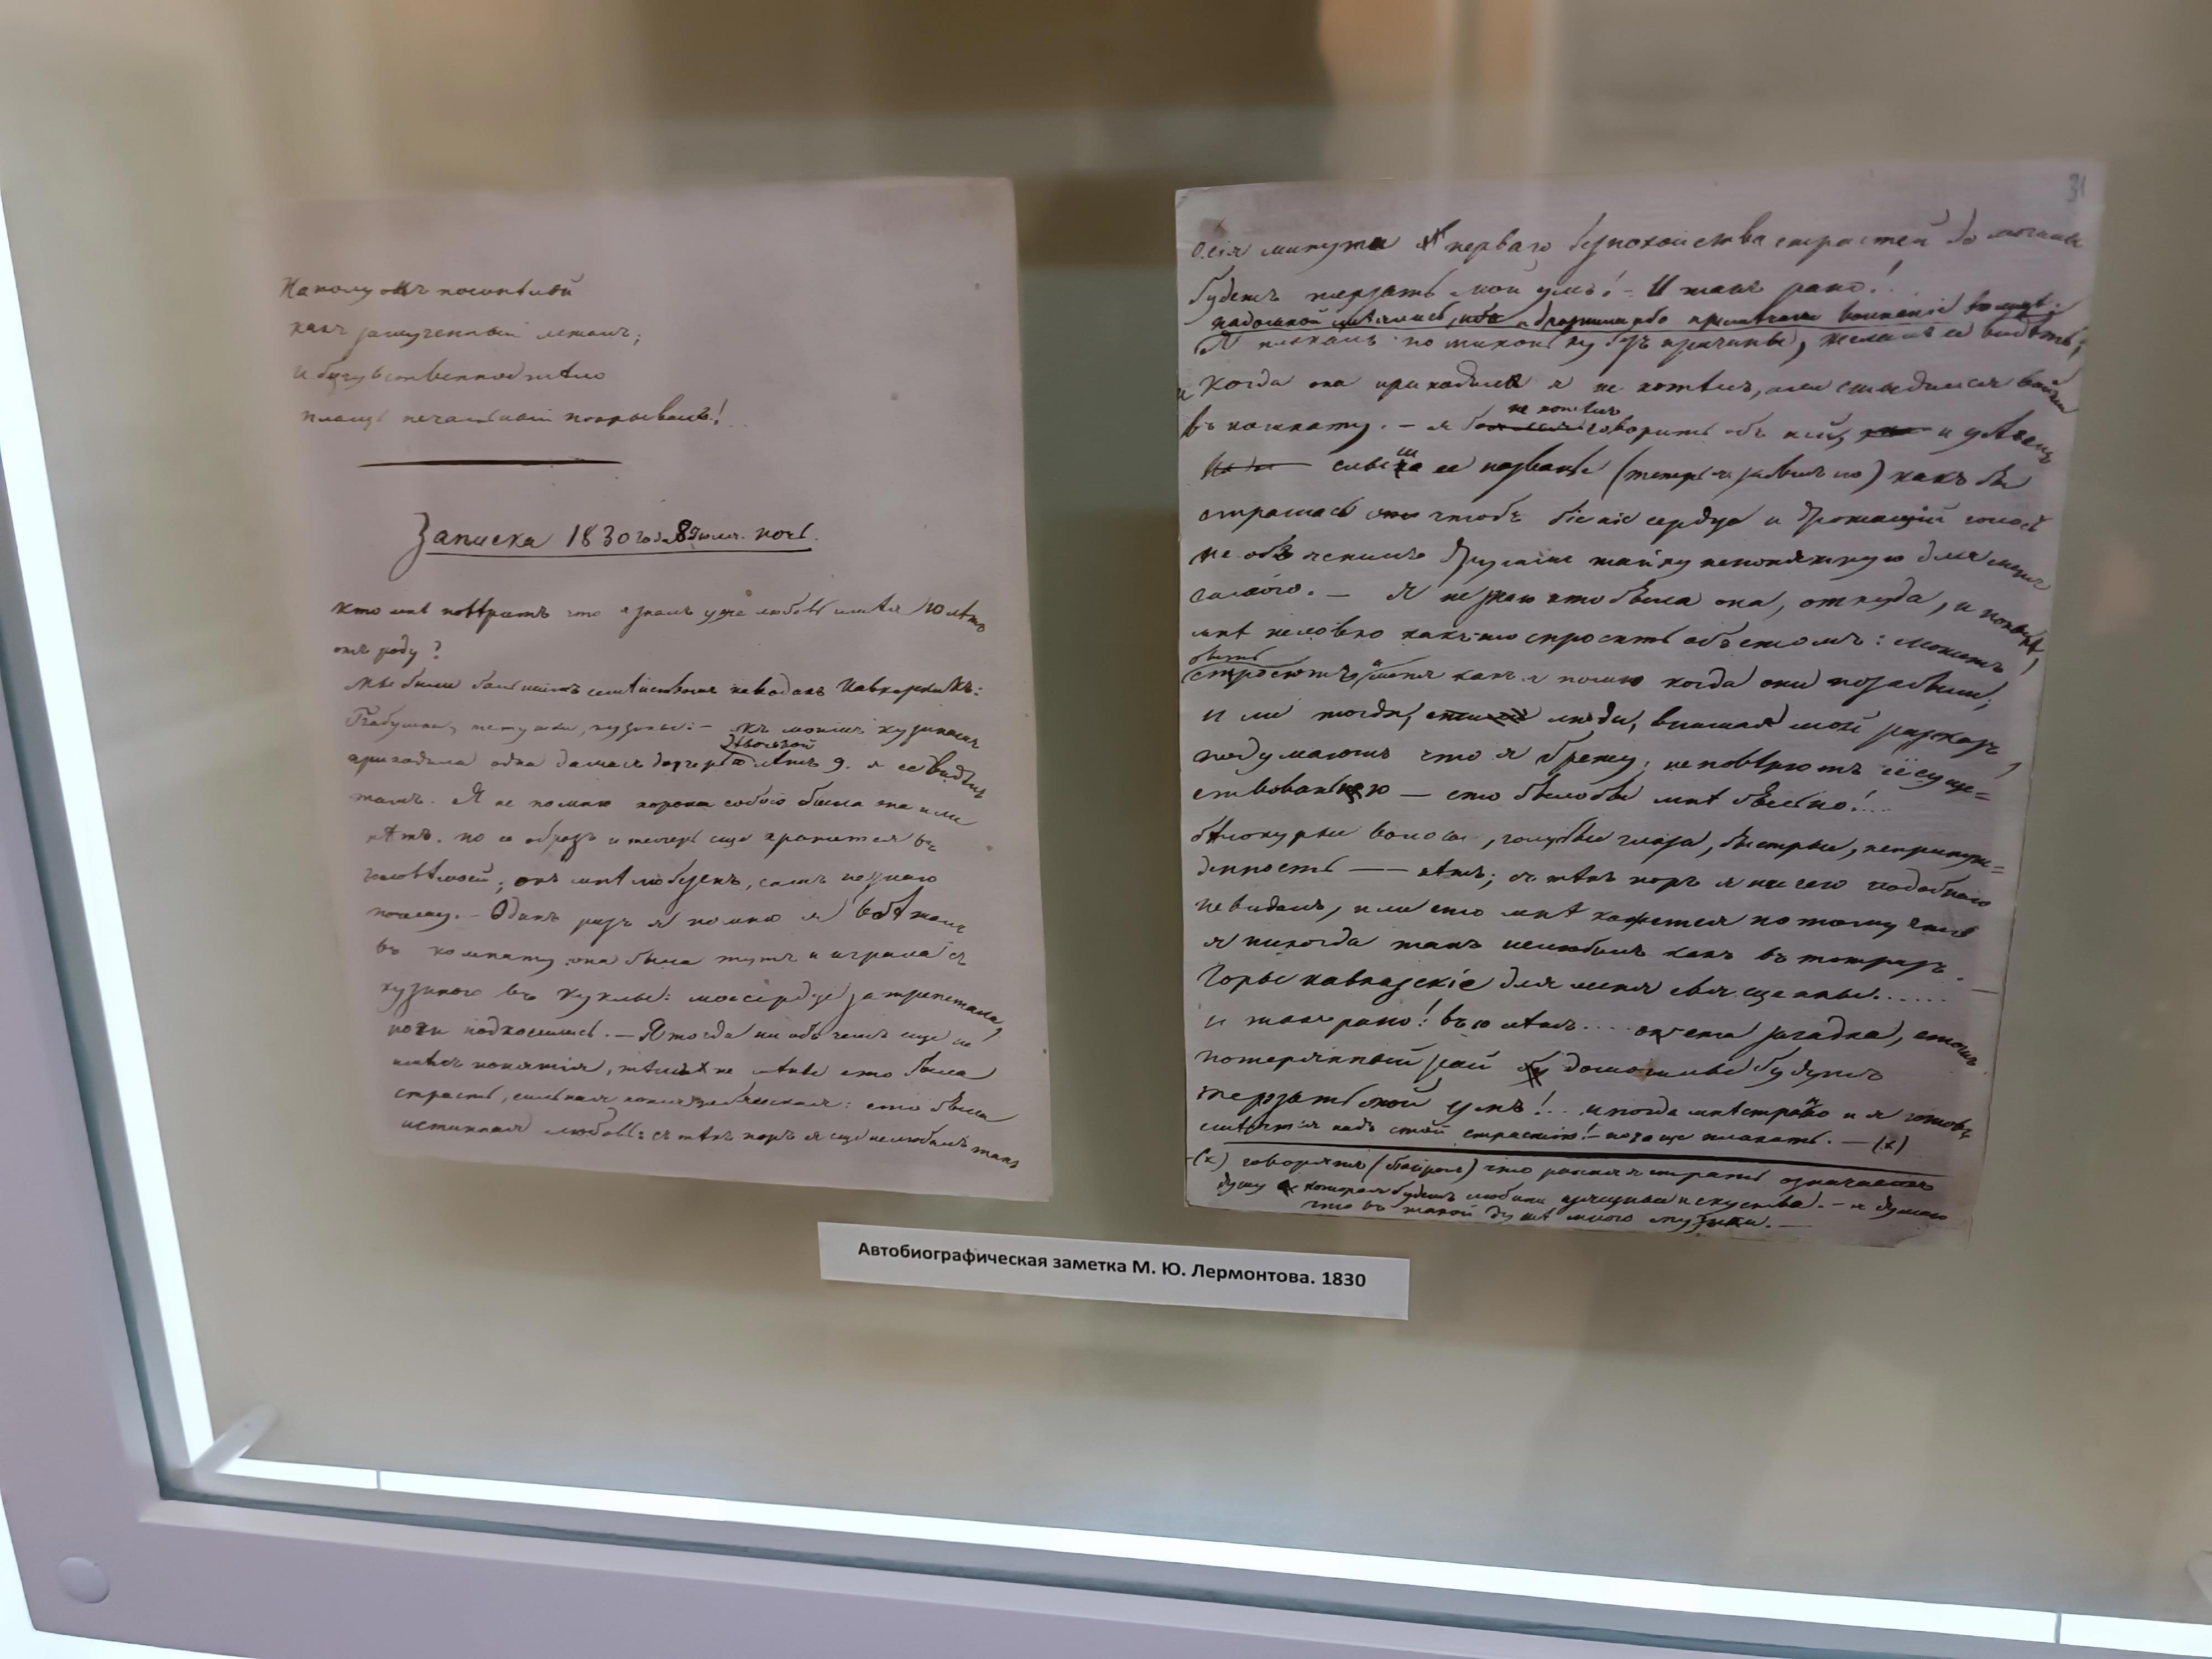 На полу онъ посинѣлой
какъ замученный лежалъ;
И безчувственное тѣло
плащъ печальный покрывалъ!
Записка 1830 года 8 июля. ночь.
Кто мнѣ повѣритъ что я зналъ уже любовь имѣя 10 лѣтъ
отъ роду?
Мы были большимъ семействомъ на водахъ Кавказскихъ:
Бабушка, тетушки, кузины. – къ моимъ кузинамъ
дѣвочкой
приходила одна дама съ дочерью лѣтъ 9. я ее видѣлъ
тамъ. Я не помню хороша собою была она или
нѣтъ. но ее образъ и теперь еще хранится въ
головѣ моей; онъ мнѣ любезенъ, самъ не знаю
почему. – Одинъ разъ я помню я вбѣжалъ
въ комнату: она была тутъ и играла съ
кузиною въ куклы: мое сердце затрепетало,
ноги подкосились. – Я тогда ни объ чемъ еще не
имѣлъ понятія, тѣмъ не менѣе это была
страсть, сильная, хотя ребяческая: это была
истинная любовь: съ тѣхъ поръ я еще не любилъ такъ
31
О сія минута перваго безпокойства страстей до могилы
будетъ терзать мой умъ! – И такъ рано!
надомной смѣялись, и дразнили ибо примѣчали волненіе въ лицѣ.
Я плакалъ потихоньку безъ причины, желалъ ее видѣть;
и когда она приходила я не хотѣлъ, или стыдился войти
не хотѣлъ
въ комнату. – я говорить объ ней, и убѣгалъ
слыша ее названье (теперь я забылъ его) какъ бы
страшась чтобъ біеніе сердца и дрожащій голосъ
не объяснилъ другимъ тайну непонятную для меня
самого. – Я не знаю кто была она, откуда, и понынѣ,
мнѣ неловко какъ-то спросить объ этомъ: можетъ
быть
спросятъ и меня какъ я помню когда они позабыли;
или тогда, люди, внимая мой разсказъ,
подумаютъ что я брежу; не повѣрютъ ее суще=
ствованью – это было бы мнѣ больно!...
бѣлокурые волосы, голубые глаза, быстрые, непринуж=
денность — нѣтъ; съ тѣхъ поръ я ничего подобнаго
не видалъ, или это мнѣ кажется потому что
я никогда такъ нелюбилъ какъ въ тотъ разъ.
Горы кавказскіе для меня священны. .....
и такъ рано! въ 10 лѣтъ.... о эта загадка, этотъ
потерянный рай до могилы будутъ
терзать мой умъ!.. иногда мнѣ странно и я готовъ
смѣяться надъ этой страстію! – но чаще плакать. – (х)
–(х) говорятъ (Байронъ) что ранняя страсть означаетъ
душу которая будетъ любить изящныя искуства. – я думаю
что въ такой душѣ много музыки. –
Автобиографическая заметка М. Ю. Лермонтова. 1830